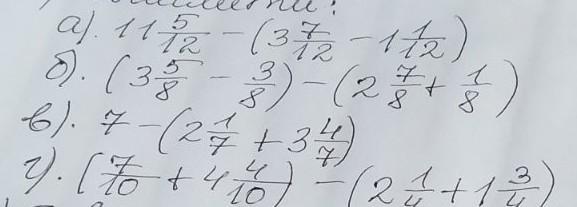 а). 11 5/12 - (3 7/12 - 1 1/12)
б). (3 5/8 - 3/8) - (2 7/8 + 1/8)
в). 7 - (2 1/7 + 3 4/7)
г). (7/10 + 4 4/10) - (2 1/4 + 1 3/4)